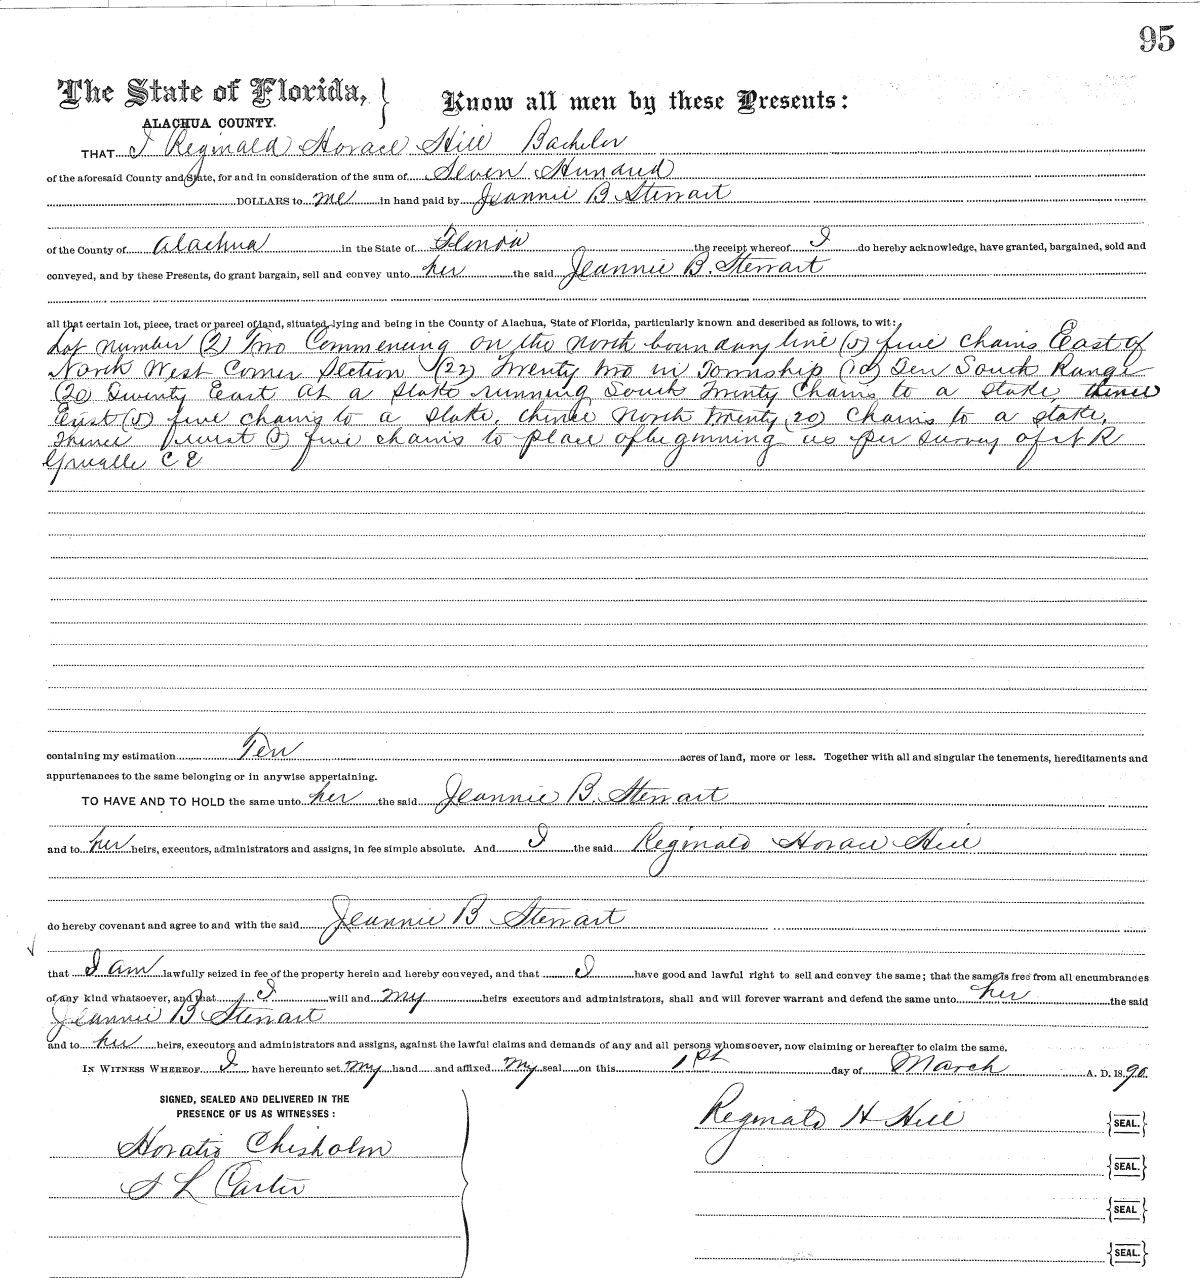 95
The State of Florida,
ALACHUA COUNTY.
Know all men by these Presents:
THAT I Reginald Horace Hill Bachelor
of the aforesaid County and State, for and in consideration of the sum of Seven Hundred
DOLLARS to me in hand paid by Jeannie B Stewart
of the County of Alachua in the State of Florida the receipt whereof I do hereby acknowledge, have granted, bargained, sold and
conveyed, and by these Presents, do grant bargain, sell and convey unto her the said Jeannie B. Stewart
all that certain lot, piece, tract or parcel of land, situated, lying and being in the County of Alachua, State of Florida, particularly known and described as follows, to wit:
Lot number (2) Two Commencing on the north boundary line (5) five chains East of
North West Corner Section (22) Twenty two in Township (10) Ten South Range
(20) Twenty East at a stake running South Twenty Chains to a stake, thence
East (5) five chains to a stake, thence North Twenty (20) Chains to a stake,
Thence west (5) five chains to place of beginning as per survey of R
C E
containing my estimation Ten acres of land, more or less. Together with all and singular the tenements, hereditaments and
appurtenances to the same belonging or in anywise appertaining.
TO HAVE AND TO HOLD the same unto her the said Jeannie B. Stewart
and to her heirs, executors, administrators and assigns, in fee simple absolute. And I the said Reginald Horace Hill
do hereby covenant and agree to and with the said Jeannie B Stewart
that I am lawfully seized in fee of the property herein and hereby conveyed, and that I have good and lawful right to sell and convey the same; that the same is free from all encumbrances
of any kind whatsoever, and that I will and my heirs executors and administrators, shall and will forever warrant and defend the same unto her the said
Jeannie B Stewart
and to her heirs, executors and administrators and assigns, against the lawful claims and demands of any and all persons whomsoever, now claiming or hereafter to claim the same.
IN WITNESS WHEREOF I have hereunto set my hand and affixed my seal on this 1st day of March A. D. 1890
SIGNED, SEALED AND DELIVERED IN THE
PRESENCE OF US AS WITNESSES:
Reginald H Hill {SEAL.}
Horatio Chisholm
{SEAL.}
S L Carter
{SEAL}
{SEAL.}